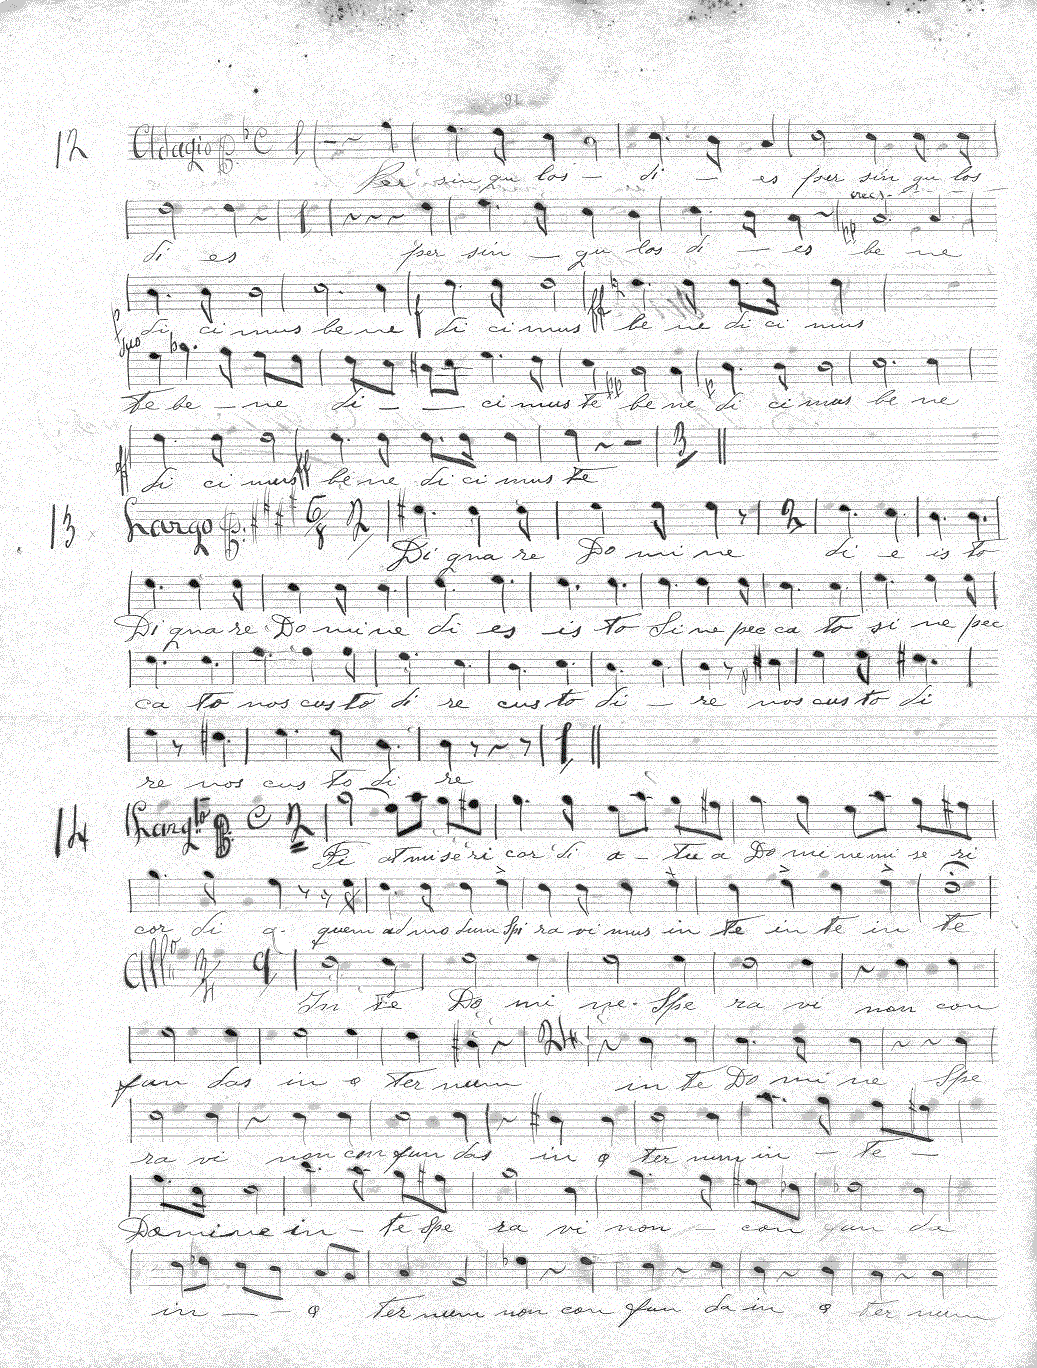 91
12 Adagio C
Per sin gu los - di - es per sin gu los
cresc.
di es per sin - gu los di - es be ne
di ci mus be ne f di ci mus ff be ne di ci mus
te be - ne di - - ci mus te pp be ne p di ci mus be ne
ff di ci mus ff be ne di ci mus te
3
13 Largo 6/8 2
Di gna re Do mi ne di e is to
2
Di gna re Do mi ne di es is to Si ne pec ca to si ne pec
ca to nos cus to di re cus to di - re nos cus to di
p
re nos cus to di re
14 Larg.to C 2
Fi at mi se ri cor di a - tu a Do mi ne mi se ri
cor di a. quem ad mo dum Spi ra vi mus in te in te in te
All.o 9
In te Do mi ne. Spe ra vi non con
fun das in e ter num in te Do mi ne Spe
24
ra vi non con fun das in e ter num in - te -
Domine in - te Spe ra vi non - con fun da
in - - e ter num non con fun da in e ter num